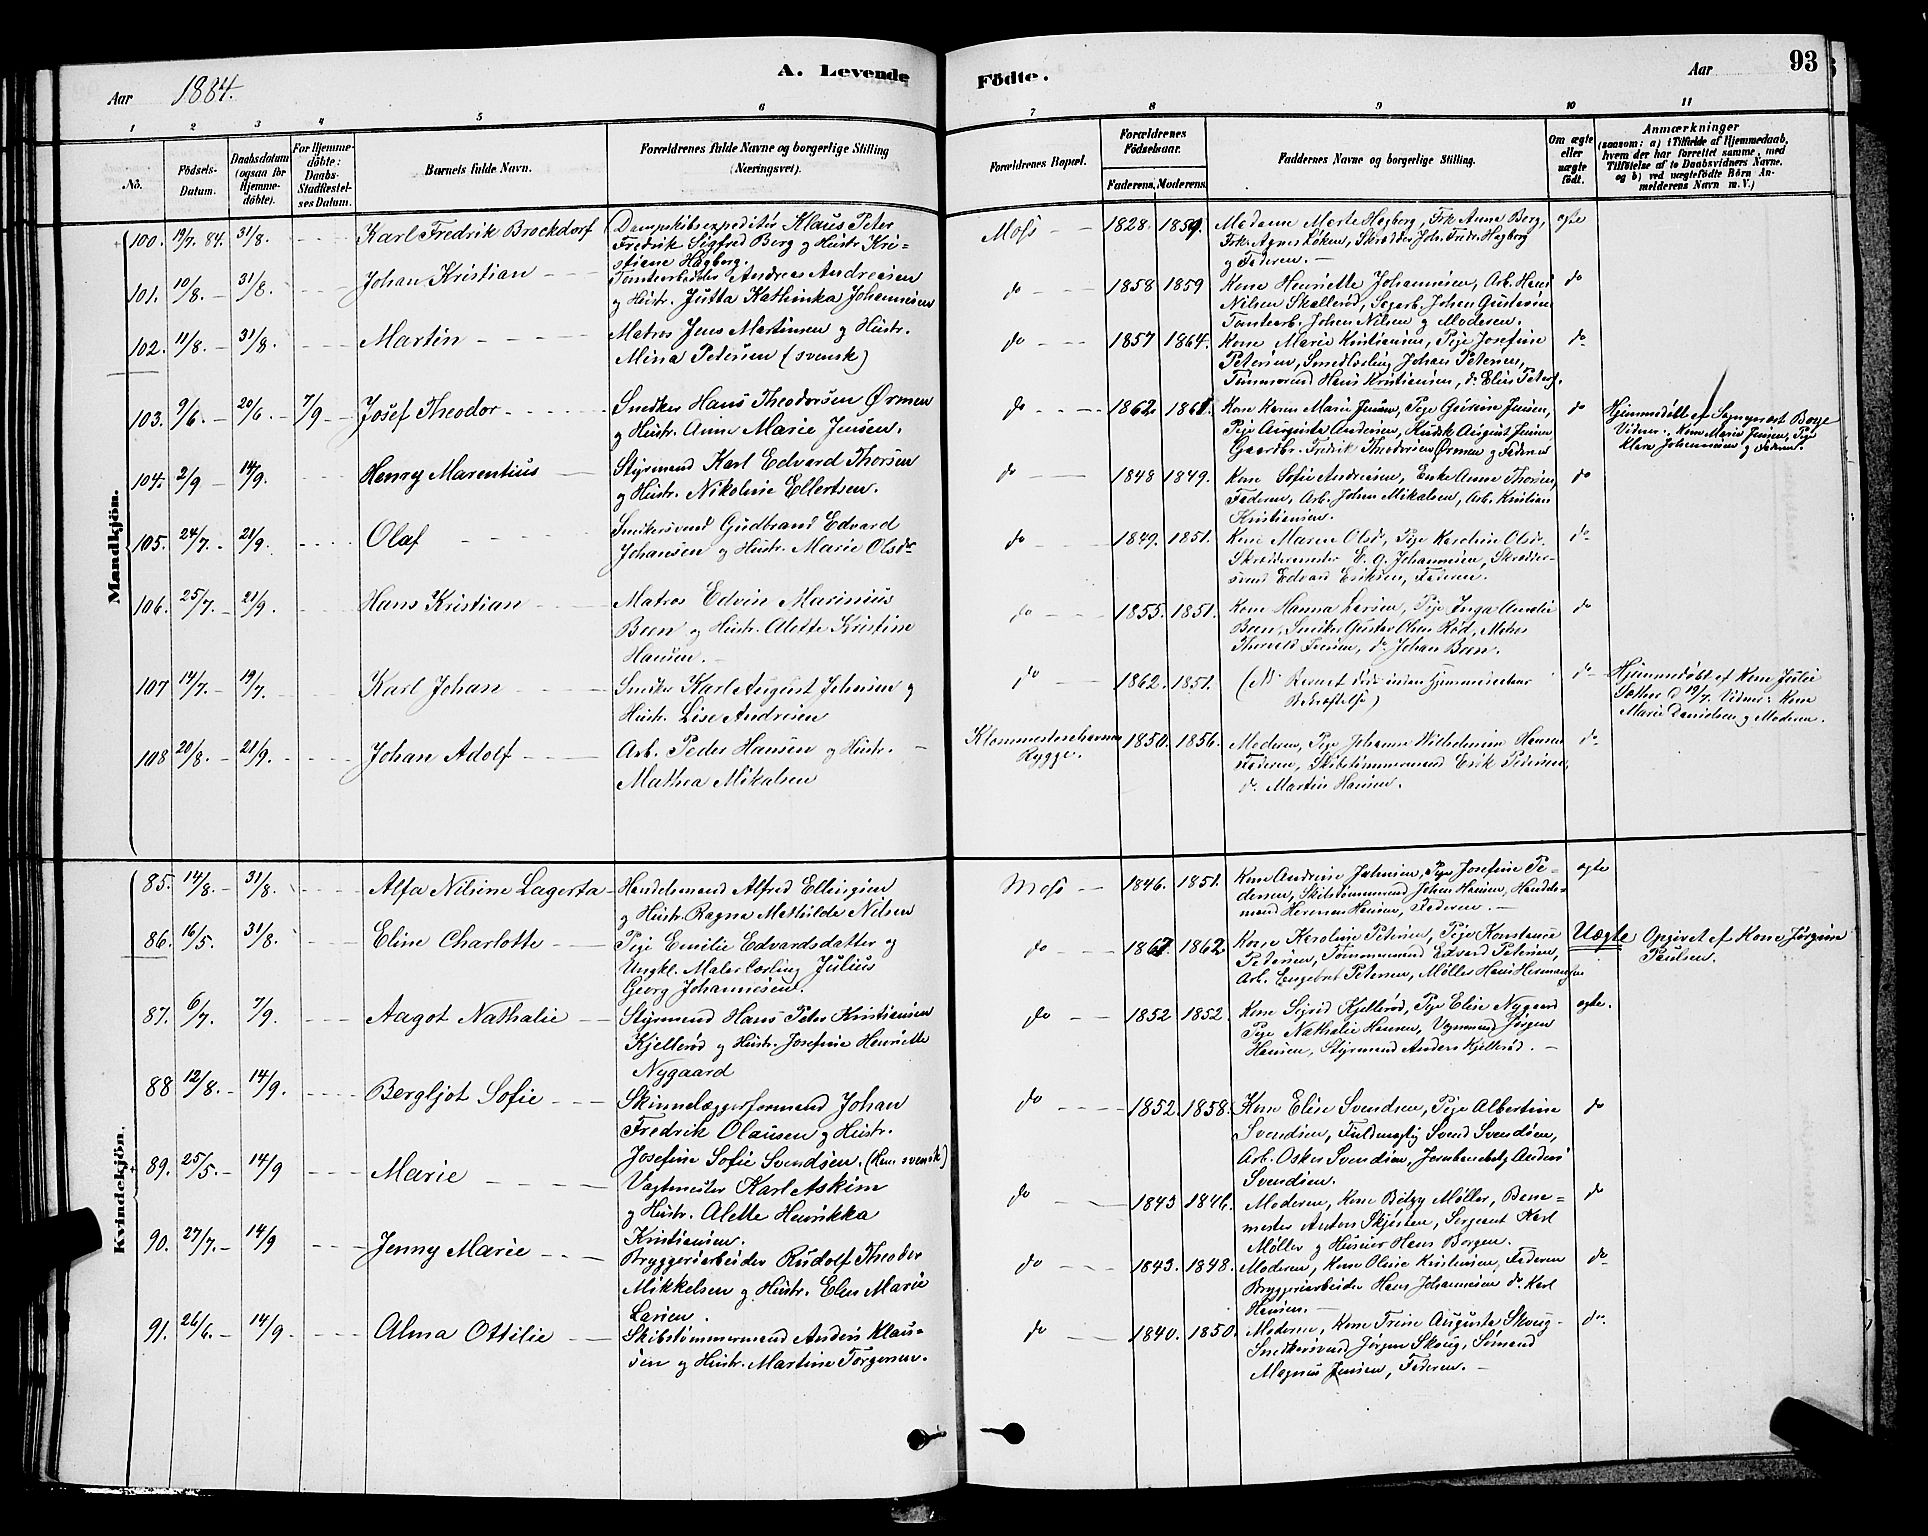 A. Levende
Aar 1884.
1 2 3 4 5 6
No. Födsels-Datum. Daabsdatum (ogsaa for Hjemmedöbte). For Hjemmedöbte: Daabs-Stadfæstelses Datum. Barnets fulde Navn. Forældrenes fulde Navne og borgerlige Stilling (Næringsvei).
Mandkjön.
100. 19/7. 84. 31/8. Karl Fredrik Brockdorf Dampskibsexpeditør Klaus Peter
Fredrik Sigfred Berg og Hustr. Kri-
stiane Hagberg.
101. 10/8. 31/8. Johan Kristian Tomtearbeider Andreas Andreasen
og Hustr. Jutta Kathinka Johannesen
102. 11/8. 31/8. Martin Matros Jens Martinsen og Hustr.
Mina Petersen (svensk)
103. 9/6. 20/6. 7/9 Josef Theodor Snedker Hans Theodorsen Ørmen
og Hustr. Anne Marie Jensen.
104. 2/9 14/9. Henry Marentius Styrmand Karl Edvard Thorsen
og Hustr. Nikoline Ellertsen.
105. 24/7. 21/9. Olaf Snekersvend Gudbrand Edvard
Johansen og Hustr. Marie Olsdr
106. 25/7. 21/9. Hans Kristian Matros Edvin Marinius
Been og Hustr. Alette Kristine
Hansen.
107 14/7. 19/7. Karl Johan Snedker Karl August Johnsen og
Hustr. Lise Andresen
108 20/8. 21/9. Johan Adolf Arb. Peder Hansen og Hustr.
Mathea Mikalsen
Kvindekjön.
85. 14/8. 31/8. Alfa Nilsine Lagerta Handelsmand Alfred Ellingsen
og Hustr. Ragna Mathilde Nilsen
86. 16/5. 31/8. Eline Charlotte Pige Emilie Edvardsdatter og
Ungkl. Malersvend Julius
Georg Johannesen.
87. 6/7. 7/9. Aagot Nathalie Styrmand Hans Peter Kristiansen
Kjellerød og Hustr. Josefine Henriette
Nygaard
88 12/8. 14/9. Bergljot Sofie Skinnelæggerformand Johan
Fredrik Olausen og Hustr.
Josefine Sofie Svendsen. (Han svensk)
89. 25/5. 14/9 Marie Vagtmester Karl Askim
og Hustr. Alette Henrikka
Kristiansen.
90. 27/7. 14/9 Jenny Marie Bryggeriarbeider Rudolf Theodor
Mikkelsen og Hustr. Elen Marie
Larsen.
91. 26/6. 14/9. Alma Ottilie Skibstømmermand Anders Klau-
sen og Hustr. Martine Torgersen.
Födte.
Aar 93
7 8 9 10 11
Forældrenes Bopæl. Forældrenes Födselsaar. Faderens. Moderens. Faddernes Navne og borgerlige Stilling. Om ægte eller uægte födt. Anmærkninger (saasom: a) i Tilfælde af Hjemmedaab, hvem der har forrettet samme, med Tilföielse af to Daabsvidners Navne, og b) ved uægtefödte Börn Anmelderens Navn m. V.)
Moss 1828. 1859. Madame Marte Hagberg, Frk. Anna Berg, ægte
Frk. Agnes Løken, Skrædder Joh. Fredr. Hagberg
og Faderen.
do 1858 1859 Kone Henriette Johannesen, Arb. Hans do
Nilsen Skallerød, Sagarb. Johan Gustavsen
Tomtearb. Johan Nilsen og Moderen.
do 1857 1864. Kone Marie Kristiansen, Pige Josefine do
Petersen, Johan Petersen,
Tømmermd Hans Kristiansen, do Elias Peters.
do 1862. 1861. Kone Karen Marie Jensen, Pige Jensen, do Hjemmedøbt af Boye
Pige Augusta Andersen, Kudsk August Jensen Vidner: Kone Marie Jensen, Pige
Gaardbr. Fredrik Theodorsen Ørmen og Faderen Klara Johannesen og Faderen.
do 1848 1849. Kone Sofie Andreasen, Enke Anne Thorsen, do
Faderen, Arb. Johan Mikalsen, Arb. Kristian
Kristiansen.
do 1849. 1851. Kone Maren Olsdr, Pige Karoline Olsdr. do
Skræddermester E. G. Johannesen, Skrædder-
svend Edvard Eriksen, Faderen.
do 1855. 1851. Kone Hanna Larsen, Pige Inga Amalie do
Been, Snedker Gustav Olsen Rød, Matros
Thorvald Iversen, do Johan Been.
do 1862. 1851. do Hjemmedøbt af Kone Julie
Sæther d 19/7. Vidner: Kone
Marie Danielsen og Moderen.
Rygge. 1850. 1856. Moderen, Pige Johanne Wilhelmine Hansen do
Faderen, Skibstømmermand Erik Pedersen,
do Martin Hansen.
Moss 1846. 1851. Kone Andrine Jahnsen, Pige Josefine Pe- ægte
dersen, Skibstømmermand Johan Hansen, Handels-
mand Herman Hansen, Faderen.
do 1861. 1862 Kone Karoline Petersen, Pige Konstance Uægte Opgivet af Kone Jørgine
Pedersen, Tømmermand Edvard Petersen, Paulsen.
Arb. Engebret Petersen, Møller Hans Hermansen
do 1852 1852. Kone Sigrid Kjellerød, Pige Elise Nygaard ægte.
Pige Nathalie Hansen, Vognmand Jørgen
Hansen, Styrmand Anders Kjellerød.
do 1852. 1858. Kone Elise Svendsen, Pige Albertine do
Svendsen, Fuldmægtig Svend Svendsen,
Arb. Oskar Svendsen, Anders
Svendsen.
do 1843 1846. Moderen, Kone Betzy Møller, Bane- do
mester Anton Skjesten, Sergeant Karl
Møller og Huseier Hans Borgen.
do 1843. 1848. Moderen, Kone Oline Kristiansen, Faderen do
Bryggeriarbeider Hans Johannesen do Karl
Hansen.
do 1840. 1850. Moderen, Kone Trine Augusta Skoug- do
Snedkersvend Jørgen Skoug, Sømand
Magnus Jensen, Faderen.